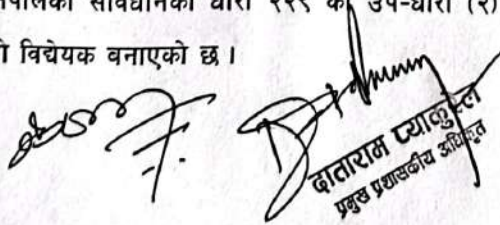 नेपालको संविधानको धारा २२१ को उप-धारा (२)
विद्येयक वनाएको छ ।
दाताराम प्याकुरेल
प्रमुख प्रशासकीय अधिकृत